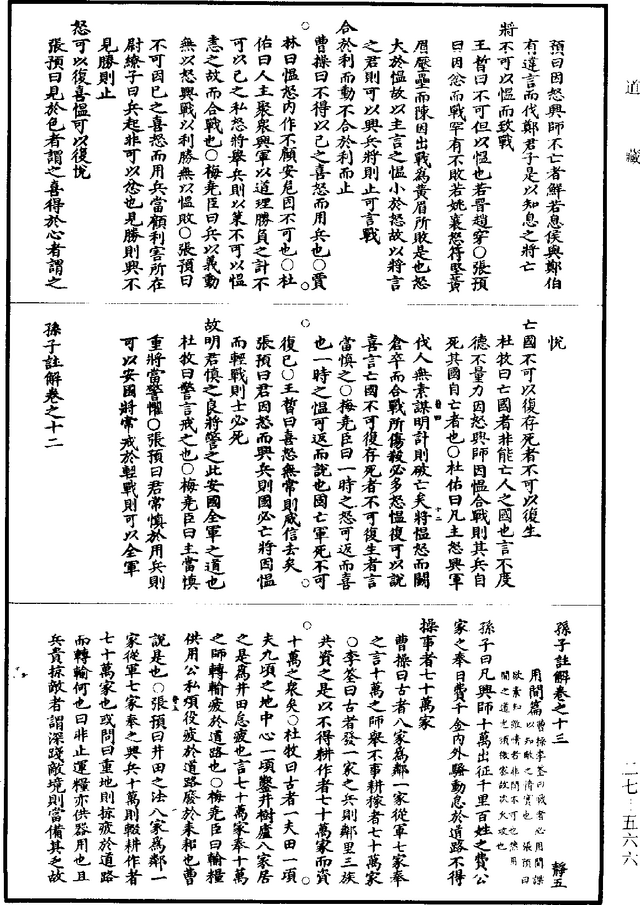 道藏
預曰因怒興師不亡者鮮若息侯與鄭伯
有違言而伐鄭君子是以知息之將亡
將不可以慍而致戰
王晳曰不可但以慍也若晉趙穿○張預
曰因忿而戰罕有不敗若姚襄怒苻堅黃
眉壓壘而陳因出戰爲黃眉所敗是也怒
大於慍故以主言之慍小於怒故以將言
之君則可以興兵將則止可言戰
合於利而動不合於利而止
曹操曰不得以己之喜怒而用兵也○賈
林曰慍怒內作不顧安危因不可也○杜
佑曰人主聚衆興軍以道理勝負之計不
可以己之私怒將舉兵則以策不可以慍
恚之故而合戰也○梅堯臣曰兵以義動
無以怒興戰以利勝無以慍敗○張預曰
不可因己之喜怒而用兵當顧利害所在
尉繚子曰兵起非可以忿也見勝則興不
見勝則止
怒可以復喜慍可以復悅
張預曰見於色者謂之喜得於心者謂之
悅
亡國不可以復存死者不可以復生
杜牧曰亡國者非能亡人之國也言不度
德不量力因怒興師因慍合戰則其兵自
死其國自亡者也○杜佑曰凡主怒興軍
伐人無素謀明計則破亡矣將慍怒而鬭
倉卒而合戰所傷殺必多怒慍復可以說
喜言亡國不可復存死者不可復生者言
當慎之○梅堯臣曰一時之怒可返而喜
也一時之慍可返而說也國亡軍死不可
復已○王晳曰喜怒無常則威信去矣
張預曰君因怒而興兵則國必亡將因慍
而輕戰則士必死
故明君慎之良將警之此安國全軍之道也
杜牧曰警言戒之也○梅堯臣曰主當慎
重將當警懼○張預曰君常慎於用兵則
可以安國將常戒於輕戰則可以全軍
孫子註解卷之十二
孫子註解卷之十三 靜五
用間篇
孫子曰凡興師十萬出征千里百姓之費公
家之奉日費千金內外騷動怠於道路不得
操事者七十萬家
曹操曰古者八家爲鄰一家從軍七家奉
之言十萬之師舉不事耕稼者七十萬家
○李筌曰古者發一家之兵則鄰里三族
共資之是以不得耕作者七十萬家而資
十萬之衆矣○杜牧曰古者一夫田一頃
夫九頃之地中心一頃鑿井樹廬八家居
之是爲井田怠疲也言七十萬家奉十萬
之師轉輸疲於道路也○梅堯臣曰輸糧
供用公私煩役疲於道路廢於耒耜也曹
說是也○張預曰井田之法八家爲鄰一
家從軍七家奉之興兵十萬則輟耕作者
七十萬家也或問曰重地則掠疲於道路
而轉輸何也曰非止運糧亦供器用也且
兵貴掠敵者謂深踐敵境則當備其乏故
二七—五六六